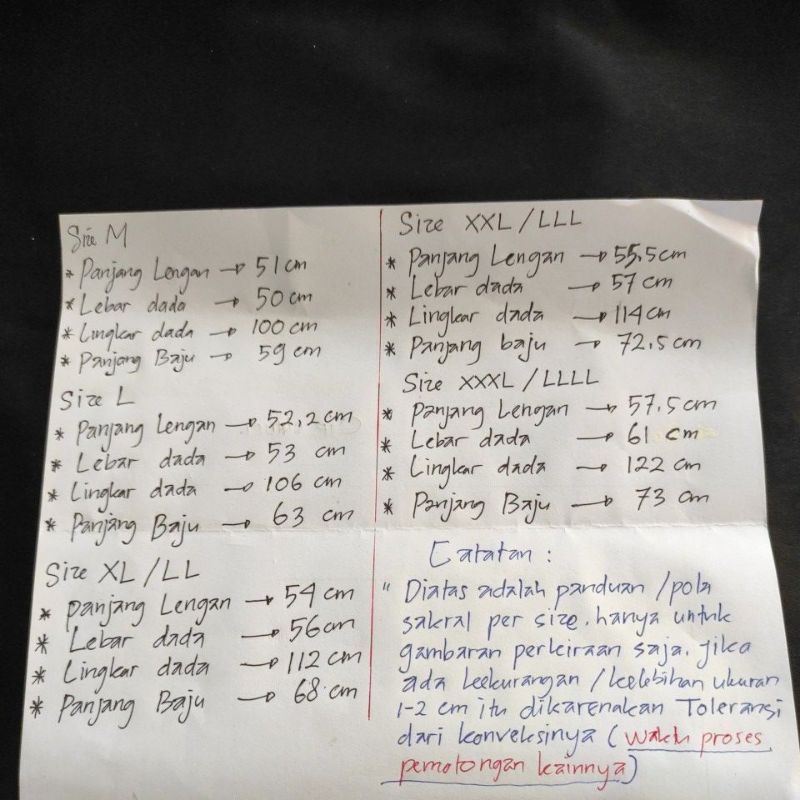 Size M
* Panjang Lengan → 51 cm
* Lebar dada → 50 cm
* Lingkar dada → 100 cm
* Panjang Baju → 59 cm
Size L
* Panjang Lengan → 52,2 cm
* Lebar dada → 53 cm
* Lingkar dada → 106 cm
* Panjang Baju → 63 cm
Size XL / LL
* Panjang Lengan → 54 cm
* Lebar dada → 56 cm
* Lingkar dada → 112 cm
* Panjang Baju → 68 cm
Size XXL / LLL
* Panjang Lengan → 55,5 cm
* Lebar dada → 57 cm
* Lingkar dada → 114 cm
* Panjang baju → 72,5 cm
Size XXXL / LLLL
* Panjang Lengan → 57,5 cm
* Lebar dada → 61 cm
* Lingkar dada → 122 cm
* Panjang Baju → 73 cm
Catatan :
" Diatas adalah panduan / pola
sakral per size. hanya untuk
gambaran perkiraan saja. jika
ada kekurangan / kelebihan ukuran
1-2 cm itu dikarenakan Toleransi
dari konveksinya ( waktu proses
pemotongan kainnya )